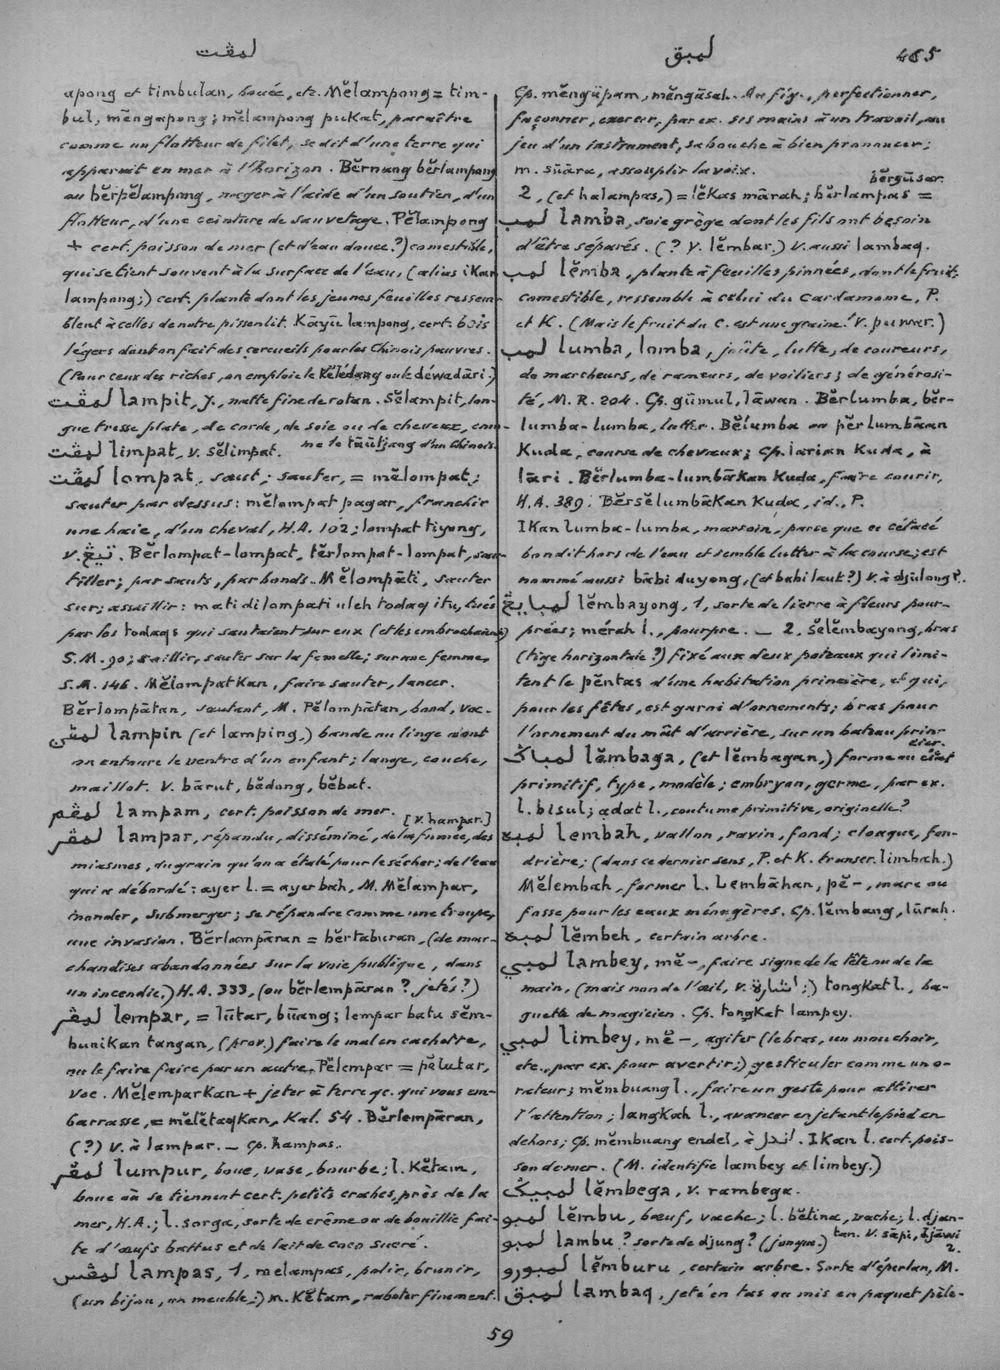 لمڤت
لمبق
465
apong et timbulan, bouée, etc. Mĕlampong = tim-
bul, mĕngapong; mĕlampong pukat, paraître
comme un flotteur de filet, se dit d'une terre qui
apparait en mer à l'horizon. Bĕrnang bĕrlampong
ou bĕrpĕlampong, nager à l'aide d'un soutien, d'un
flotteur, d'une ceinture de sauvetage. Pĕlampong
+ cert. poisson de mer (et d'eau douce?) comestible,
qui se tient souvent à la surface de l'eau, (alias ikan
lampong;) cert. plante dont les jeunes feuilles ressem-
blent à celles de notre pissenlit. Kāyū lampong, cert. bois
légers dont on fait des cercueils pour les Chinois pauvres.
(Pour ceux des riches, on emploie le kĕlĕdang ou le déwadāri.)
لمڤت lampit, J., natte fine de rotan. Sĕlampit, lon-
gue tresse plate, de corde, de soie ou de cheveux, com-
me le tāutjang d'un Chinois.
لمڤت limpat, v. sĕlimpat.
لمڤت lompat, saut; sauter, = mĕlompat;
sauter par dessus: mĕlompat pagar, franchir
une haie, d'un cheval, H.A. 102; lompat tiyong,
v. تيڠ. Bĕrlompat-lompat, tĕrlompat-lompat, sau-
tiller; par sauts, par bonds. Mĕlompāti, sauter
sur; assaillir: mati dilompati uleh todaq itu, tués
par les todaqs qui sautaient sur eux (et les embrochaient)
S.M. 90; saillir, sauter sur la femelle; sur une femme,
S.M. 146. Mĕlompatkan, faire sauter, lancer.
Bĕrlompātan, sautant, M. Pĕlompātan, bond, voc.
لمڤين lampin (et lamping,) bande ou linge dont
on entoure le ventre d'un enfant; lange, couche,
maillot. V. bārut, bĕdong, bĕbat.
لمڤم lampam, cert. poisson de mer.
[v. hampar.]
لمڤر lampar, répandu, disséminé, de la fumée, des
miasmes, du grain qu'on a étalé pour le sécher; de l'eau
qui a débordé: ayer l. = ayer bah, M. Mĕlampar,
inonder, submerger; se répandre comme une troupe,
une invasion. Bĕrlampāran = bĕrtaburan, (de mar-
chandises abandonnées sur la voie publique, dans
un incendie,) H.A. 333, (ou bĕrlempāran? jetés?)
لمڤر lempar, = lūtar, būang; lempar batu sĕm-
bunikan tangan, (prov.) faire le mal en cachette,
ou le faire faire par un autre. Pĕlempar = pĕlutar,
voc. Mĕlemparkan + jeter à terre qc. qui vous em-
barrasse, = mĕlĕtaqkan, Kal. 54. Bĕrlempāran,
(?) v. à lampar. — Cp. hampas.
لمڤر lumpur, boue, vase, bourbe; l. kĕtam,
boue où se tiennent cert. petits crabes, près de la
mer, H.A.; l. sorga, sorte de crême ou de bouillie fai-
te d'œufs battus et de lait de coco sucré.
لمڤس lampas, 1, melampas, polir, brunir,
(un bijou, un meuble;) m. kĕtam, raboter finement.
Cp. mĕngāpam, mĕngāsah. Au fig., perfectionner,
façonner, exercer, par ex. ses mains à un travail, au
jeu d'un instrument, sa bouche à bien prononcer;
m. sūāra, assouplir la voix.
2, (et halampas,) = lĕkas mārah; bĕrlampas =
bĕrgūsar.
لمب lamba, soie grège dont les fils ont besoin
d'être séparés. (? V. lĕmbar.) V. aussi lambaq.
لمب lĕmba, plante à feuilles pinnées, dont le fruit,
comestible, ressemble à celui du cardamome, P.
et K. (Mais le fruit du C. est une graine! V. puwar.)
لمب lumba, lomba, joûte, lutte, de coureurs,
de marcheurs, de rameurs, de voiliers; de générosi-
té, M.R. 204. Cp. gūmul, lāwan. Bĕrlumba, bĕr-
lumba-lumba, lutter. Bĕlumba ou pĕrlumbāan
kuda, course de chevaux; Cp. larian kuda, à
lāri. Bĕrlumba-lumbākan kuda, faire courir,
H.A. 389. Bĕrsĕlumbākan kuda, id., P.
Ikan lumba-lumba, marsoin, parce que ce cétacé
bondit hors de l'eau et semble lutter à la course; est
nommé aussi bābi duyong, (et babi laut?) V. à djūlong?.
لمبايڠ lĕmbayong, 1, sorte de lierre à fleurs pour-
prées; mérah l., pourpre. — 2, Sĕlĕmbayong, bras
(tige horizontale?) fixé aux deux poteaux qui limi-
tent le pĕntas d'une habitation princière, et qui,
pour les fêtes, est garni d'ornements; bras pour
l'ornement du mât d'arrière, sur un bateau prin-
cier.
لمباݢ lĕmbaga, (et lĕmbagan,) forme ou état
primitif, type, modèle; embryon, germe, par ex.
l. bisul; adat l., coutume primitive, originelle?
لمبه lembah, vallon, ravin, fond; cloaque, fon-
drière; (dans ce dernier sens, P. et K. transcr. limbah.)
Mĕlembah, former l. Lembāhan, pĕ-, mare ou
fosse pour les eaux ménagères. Cp. lĕmbang, lūrah.
لمبه lĕmbeh, certain arbre.
لمبي lambey, mĕ-, faire signe de la tête ou de la
main, (mais non de l'œil, v. اشارة;) tongkat l., ba-
guette de magicien. Cp. tongkat lampey.
لمبي limbey, mĕ-, agiter (le bras, un mouchoir,
etc., par ex. pour avertir;) gesticuler comme un o-
rateur; mĕmbuang l., faire un geste pour attirer
l'attention; langkah l., avancer en jetant le pied en
dehors; Cp. mĕmbuang endel, à اندل. Ikan l. cert. pois-
son de mer. (M. identifie lambey et limbey.)
لمبيݢ lĕmbega, v. rambega.
لمبو lĕmbu, bœuf, vache; l. bĕtina, vache; l. djan-
tan. V. sāpi, djāwi
2.
لمبو lambu? sorte de djung? (jonque.)
لمبورو lĕmburu, certain arbre. Sorte d'éperlan, M.
لمبق lambaq, jeté en tas ou mis en paquet pêle-
59